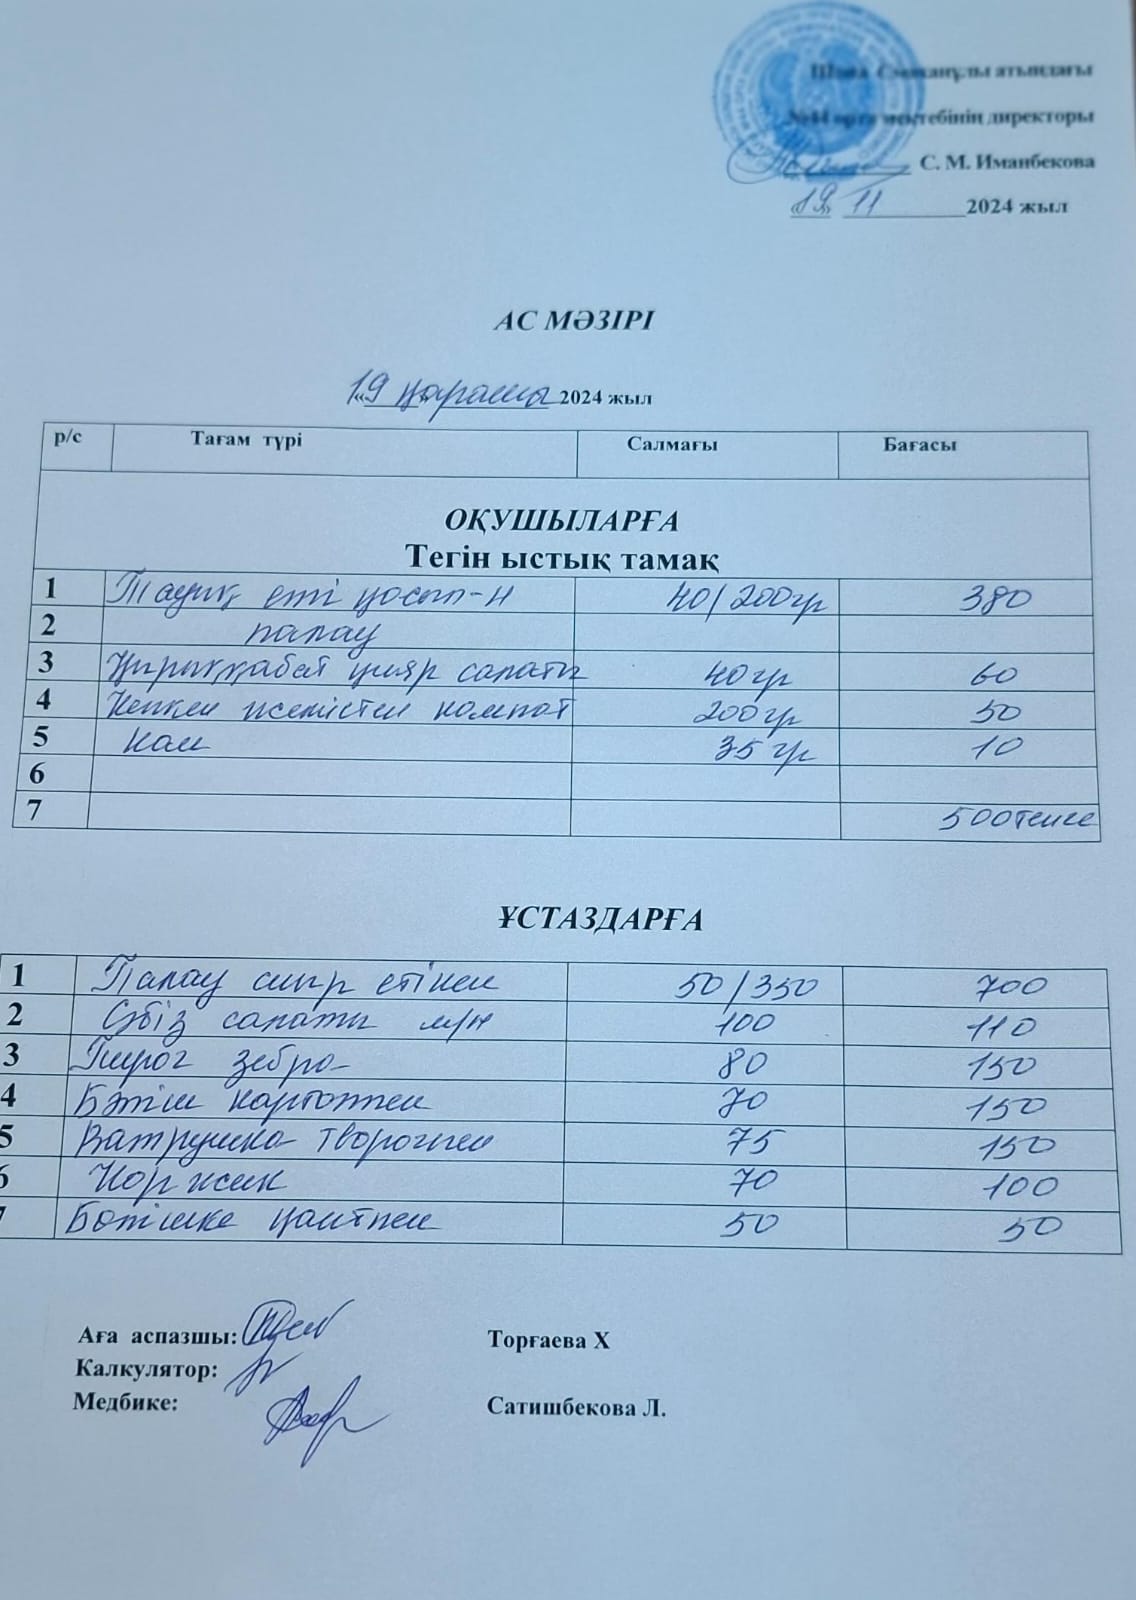 атындағы
орта мектебінің директоры
С. М. Иманбекова
19 11 2024 жыл
АС МӘЗІРІ
«19» қараша 2024 жыл
р/с Тағам түрі Салмағы Бағасы
ОҚУШЫЛАРҒА
Тегін ыстық тамақ
1 Тауық еті қосып-н 40/200гр 380
2 палау
3 Қырыққабат қияр салаты 40гр 60
4 Кепкен жемістен компот 200гр 50
5 нан 35 гр 10
6
7 500теңге
ҰСТАЗДАРҒА
1 Палау сиыр етінен 50/350 700
2 Сәбіз салаты м/н 100 110
3 Пирог зебра 80 150
4 Бәтіш картоппен 70 150
5 Ватрушка творогпен 75 150
6 Коржик 70 100
7 Бөтішке қантпен 50 50
Аға аспазшы: Торғаева Х
Калкулятор:
Медбике: Сатишбекова Л.